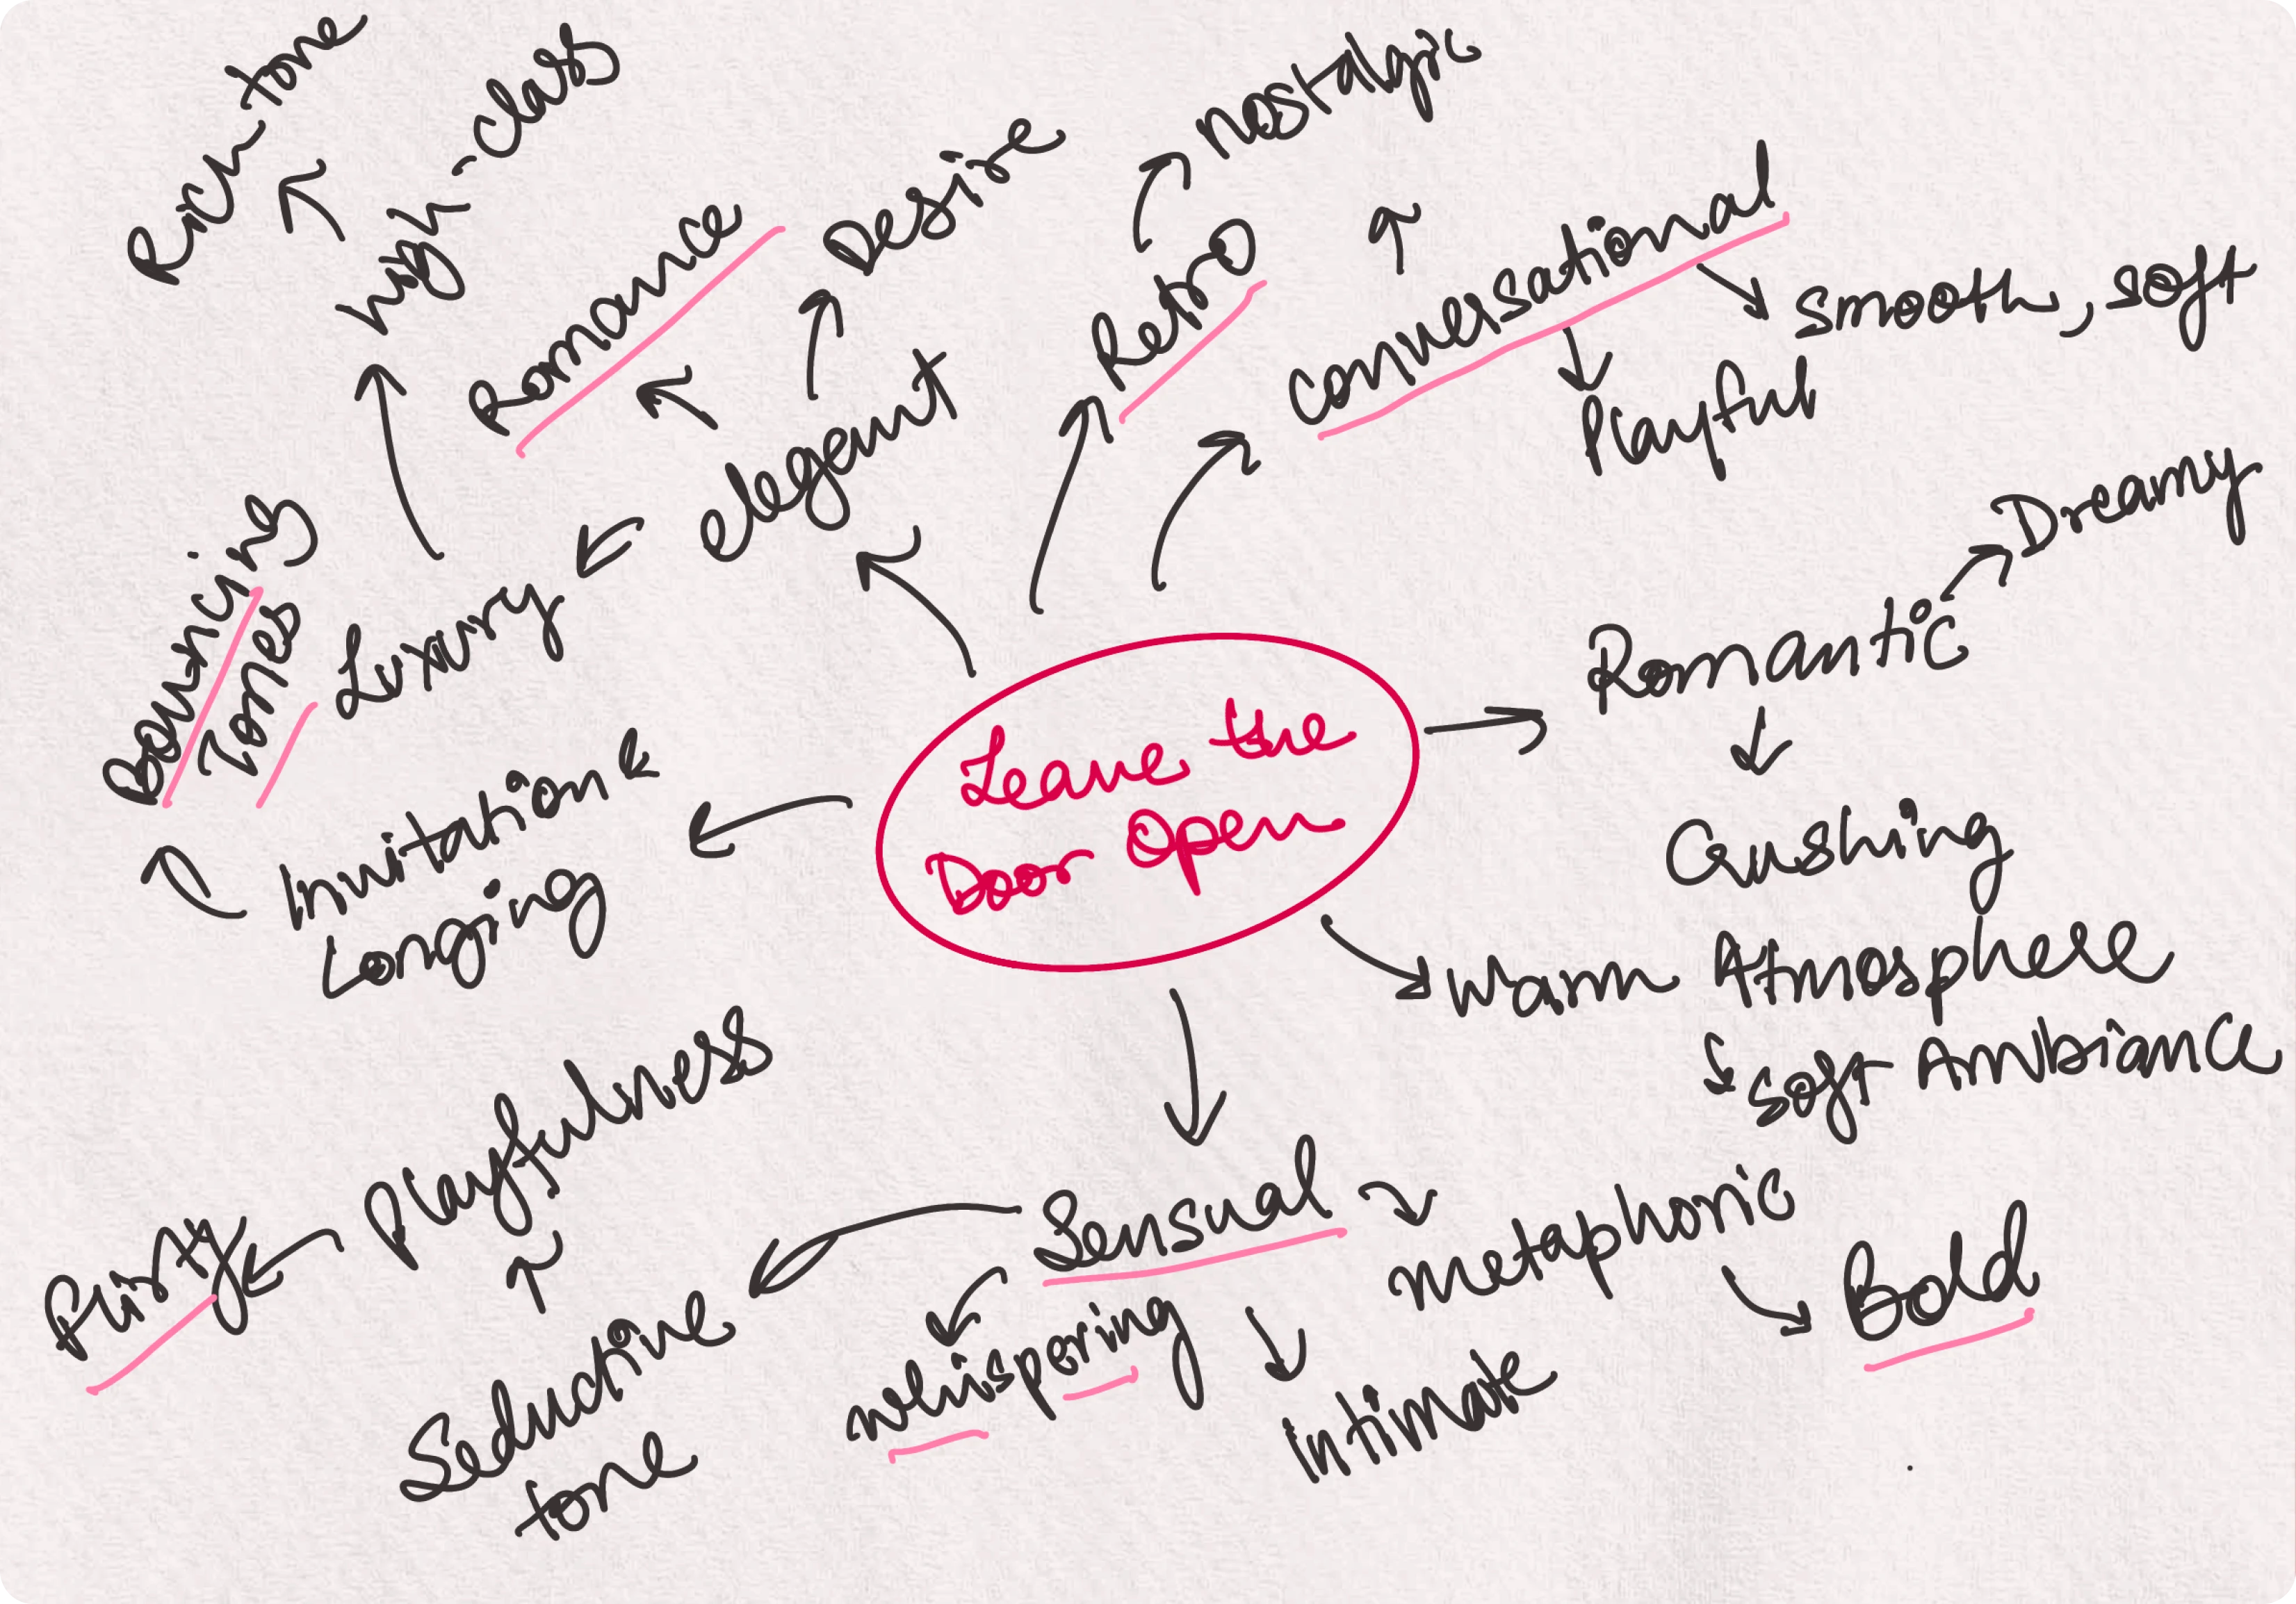 Rich tone
high-class
Romance
Desire
Retro
nostalgic
conversational
smooth, soft
Playful
elegant
Luxury
Bouncing
Tones
Invitation &
Longing
Leave the
Door Open
Romantic
Dreamy
Crushing
Warm Atmosphere
Soft Ambiance
Sensual
metaphoric
Bold
Intimate
whispering
Seductive
tone
Playfulness
Flirty